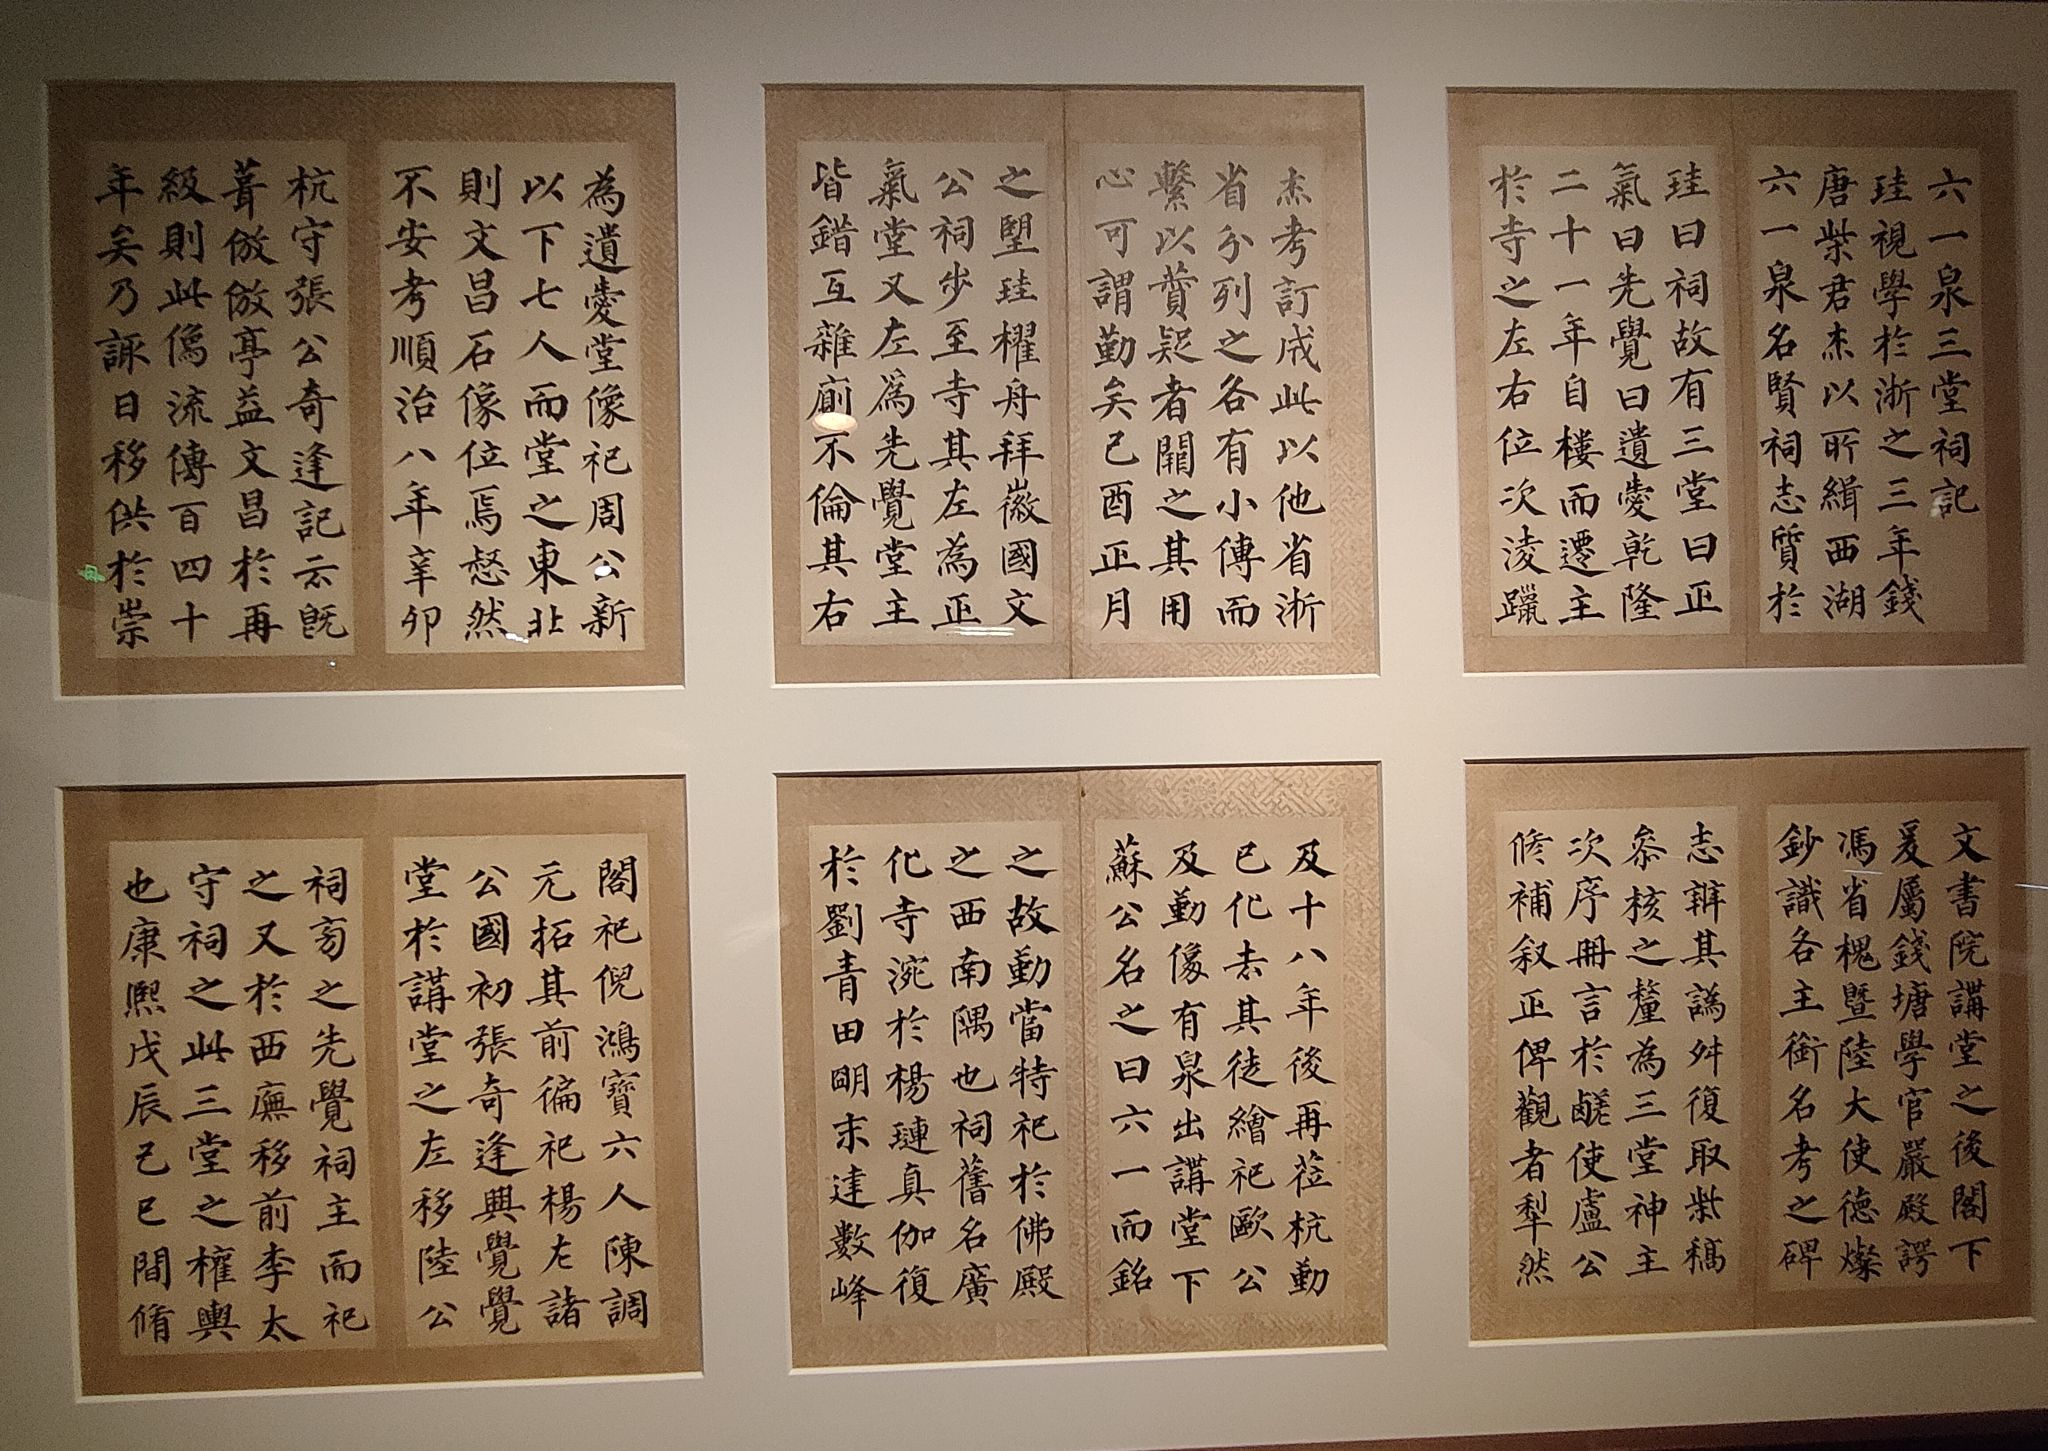 六一泉三堂祠記
珪視學於浙之三年錢
唐柴君杰以所緝西湖
六一泉名賢祠志質於
珪曰祠故有三堂曰正
氣曰先覺曰遺愛乾隆
二十一年自樓而遷主
於寺之左右位次淩躐
杰考訂成此以他省浙
省分列之各有小傳而
繫以贊疑者闕之其用
心可謂勤矣己酉正月
之朢珪櫂舟拜徽國文
公祠步至寺其左為正
氣堂又左爲先覺堂主
皆錯互雜廁不倫其右
為遺愛堂像祀周公新
以下七人而堂之東北
則文昌石像位焉惄然
不安考順治八年辛卯
杭守張公奇逢記云旣
葺倣倣亭益文昌於再
級則此僞流傳百四十
年矣乃諏日移供於崇
文書院講堂之後閣下
爰屬錢塘學官嚴殿諤
馮省槐暨陸大使德燦
鈔識各主銜名考之碑
志辨其譌舛復取柴稿
叅核之釐為三堂神主
次序冊言於鹺使盧公
修補叙正俾觀者犁然
及十八年後再莅杭勤
已化去其徒繪祀歐公
及勤像有泉出講堂下
蘇公名之曰六一而銘
之故勤當特祀於佛殿
之西南隅也祠舊名廣
化寺涴於楊璉真伽復
於劉青田明末達數峰
閣祀倪鴻寶六人陳調
元拓其前徧祀楊左諸
公國初張奇逢興覺覺
堂於講堂之左移陸公
祠旁之先覺祠主而祀
之又於西廡移前李太
守祠之此三堂之權輿
也康熙戊辰己巳間脩